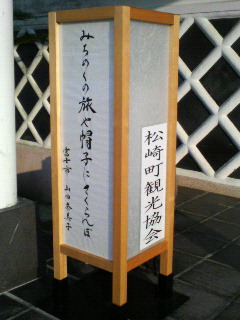 みちのくの旅や帽子にさくらんぼ
富士市 山田春美子
松崎町観光協会